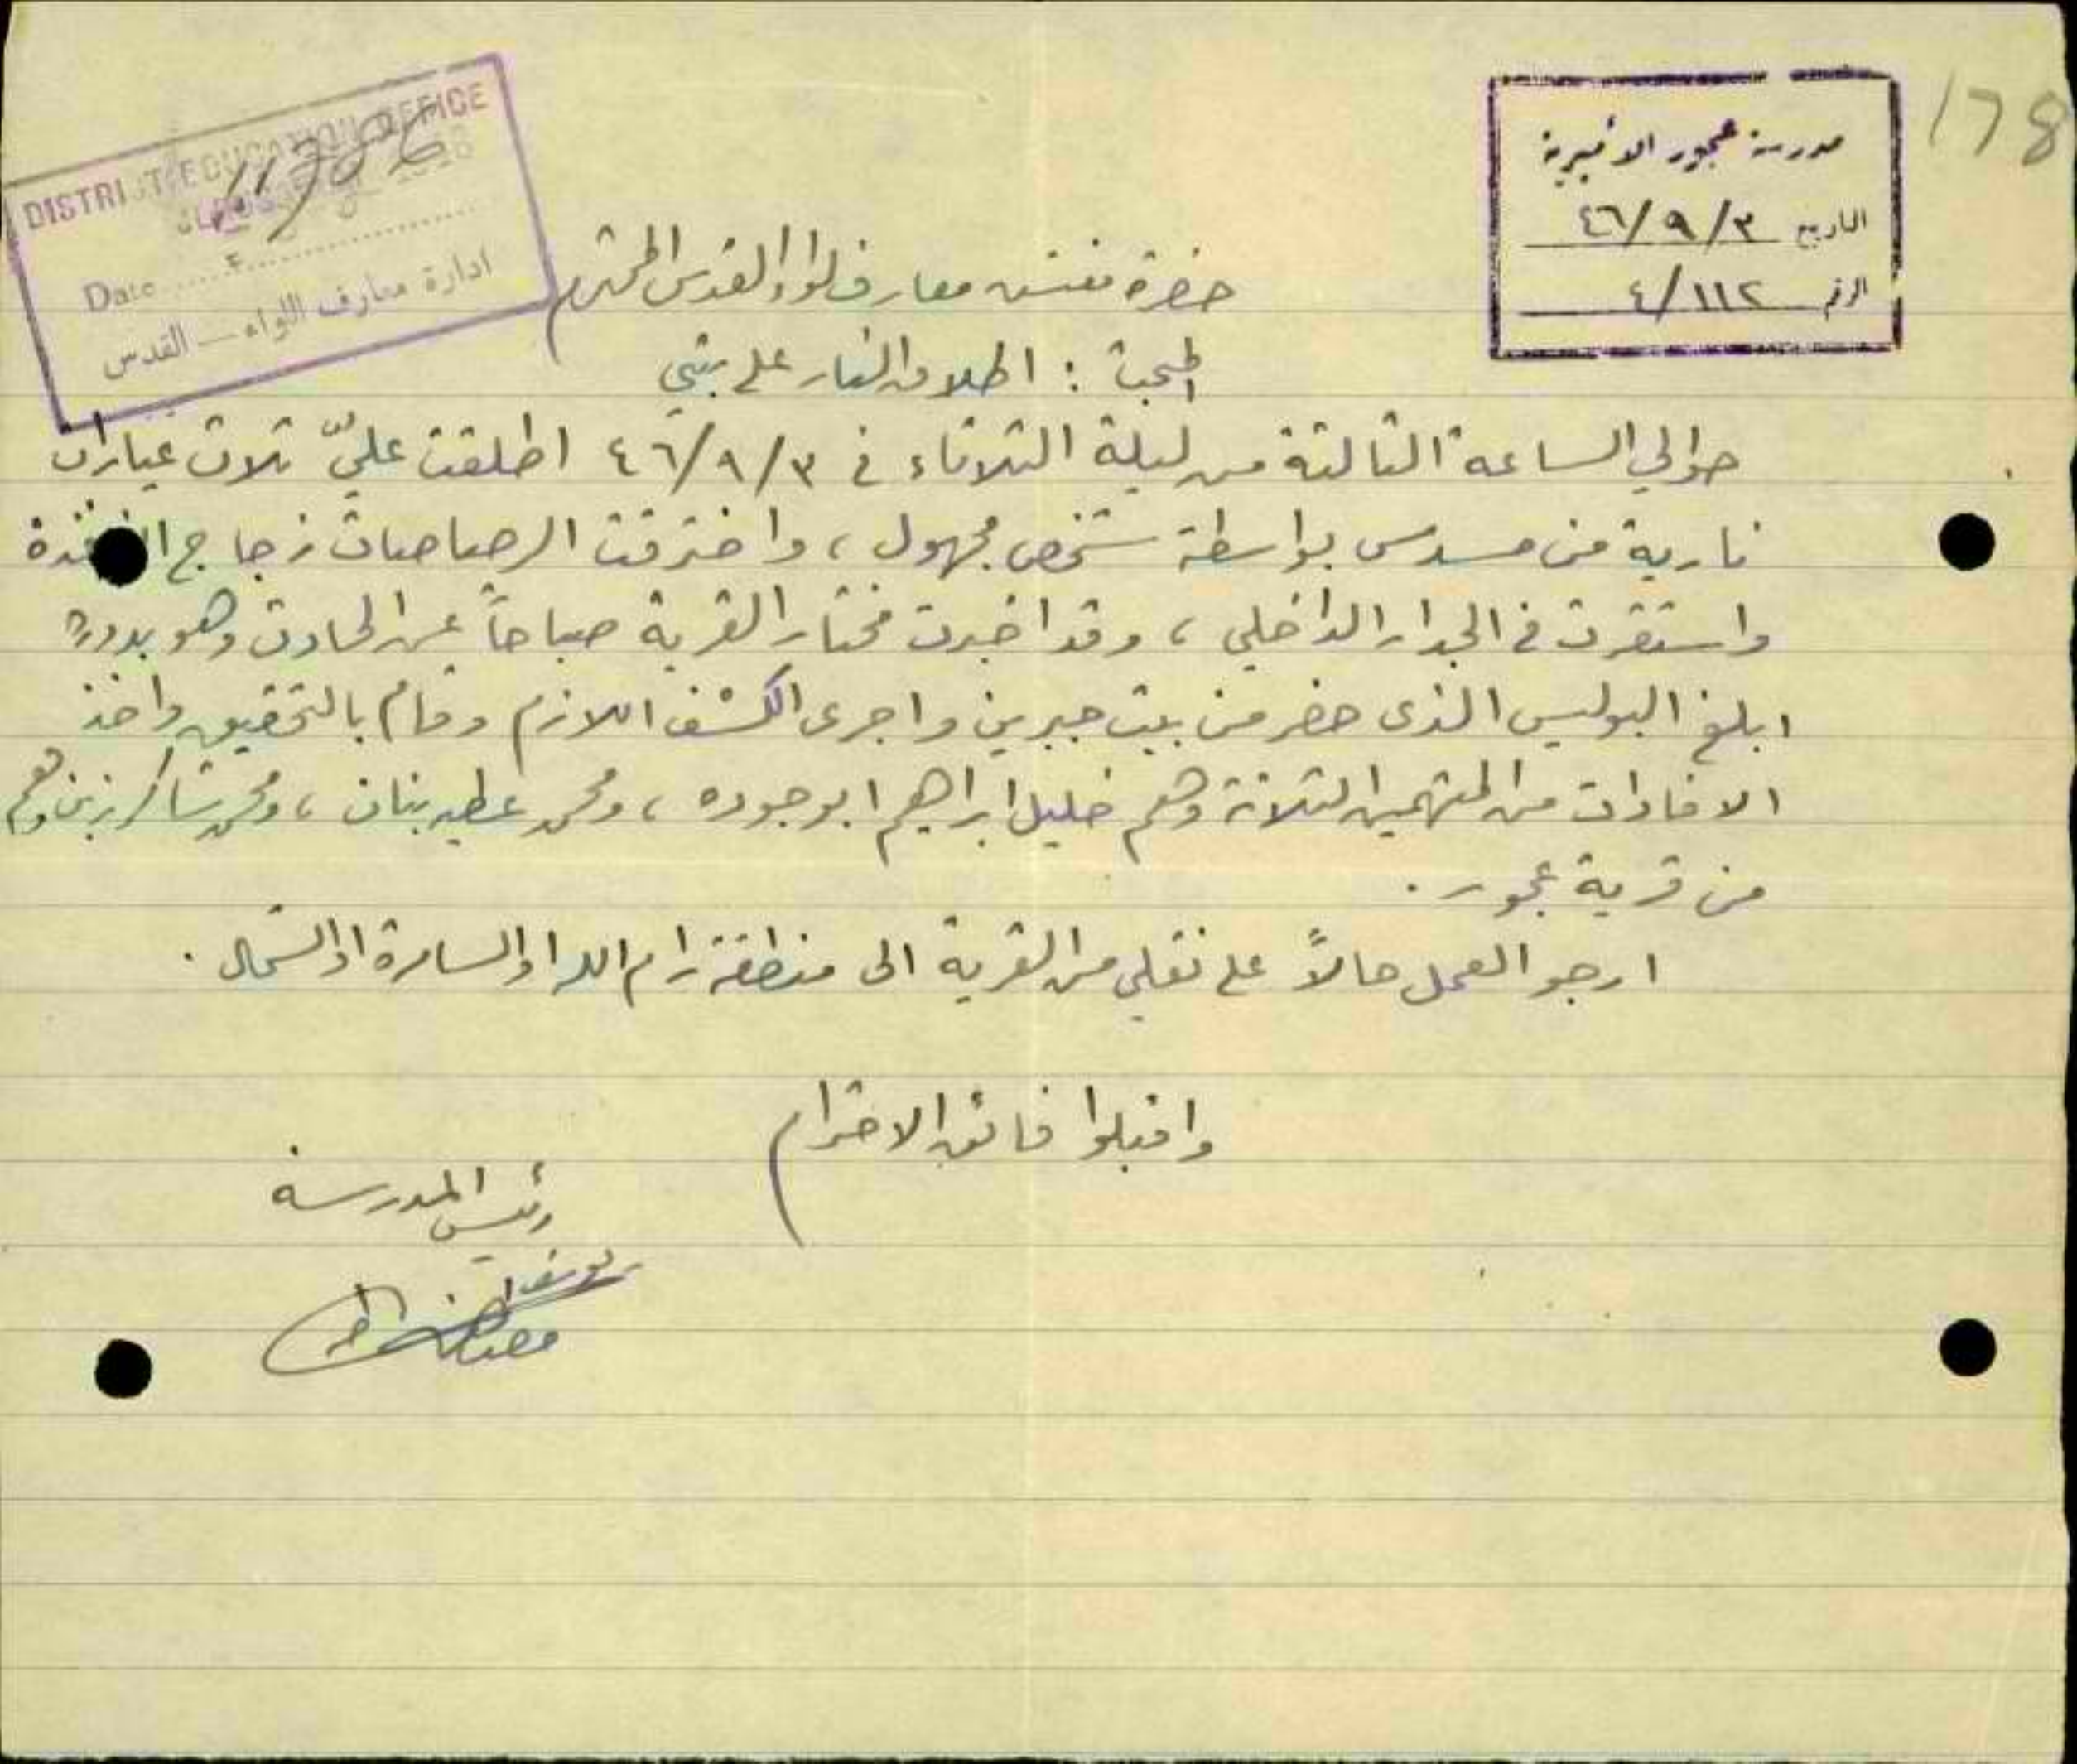 178
مدرسة عجور الاميرية
التاريخ ٤٦/٩/٣
الرقم ٤/١١٢
DISTRICT EDUCATION OFFICE
Date
ادارة معارف اللواء — القدس
حضرة مفتش معارف لواء القدس المحترم
المبحث : اطلاق النار على بيتي
حوالي الساعة الثالثة من ليلة الثلاثاء في ٤٦/٩/٣ اطلقت عليّ ثلاث عيارات
نارية من مسدس بواسطة شخص مجهول ، واخترقت الرصاصات زجاج النافذة
واستقرت في الجدار الداخلي ، وقد اخبرت مختار القرية صباحاً عن الحادث وهو بدوره
ابلغ البوليس الذي حضر من بيت جبرين واجرى الكشف اللازم وقام بالتحقيق واخذ
الافادات من المتهمين الثلاثة وهم خليل ابراهيم ابو جوده ، ومحمد عطيه بنات ، ومحمد شاكر زين وهم
من قرية عجور .
ارجو العمل حالاً على نقلي من القرية الى منطقة رام الله او السامرة او الشمال .
واقبلوا فائق الاحترام
رئيس المدرسة
يوسف